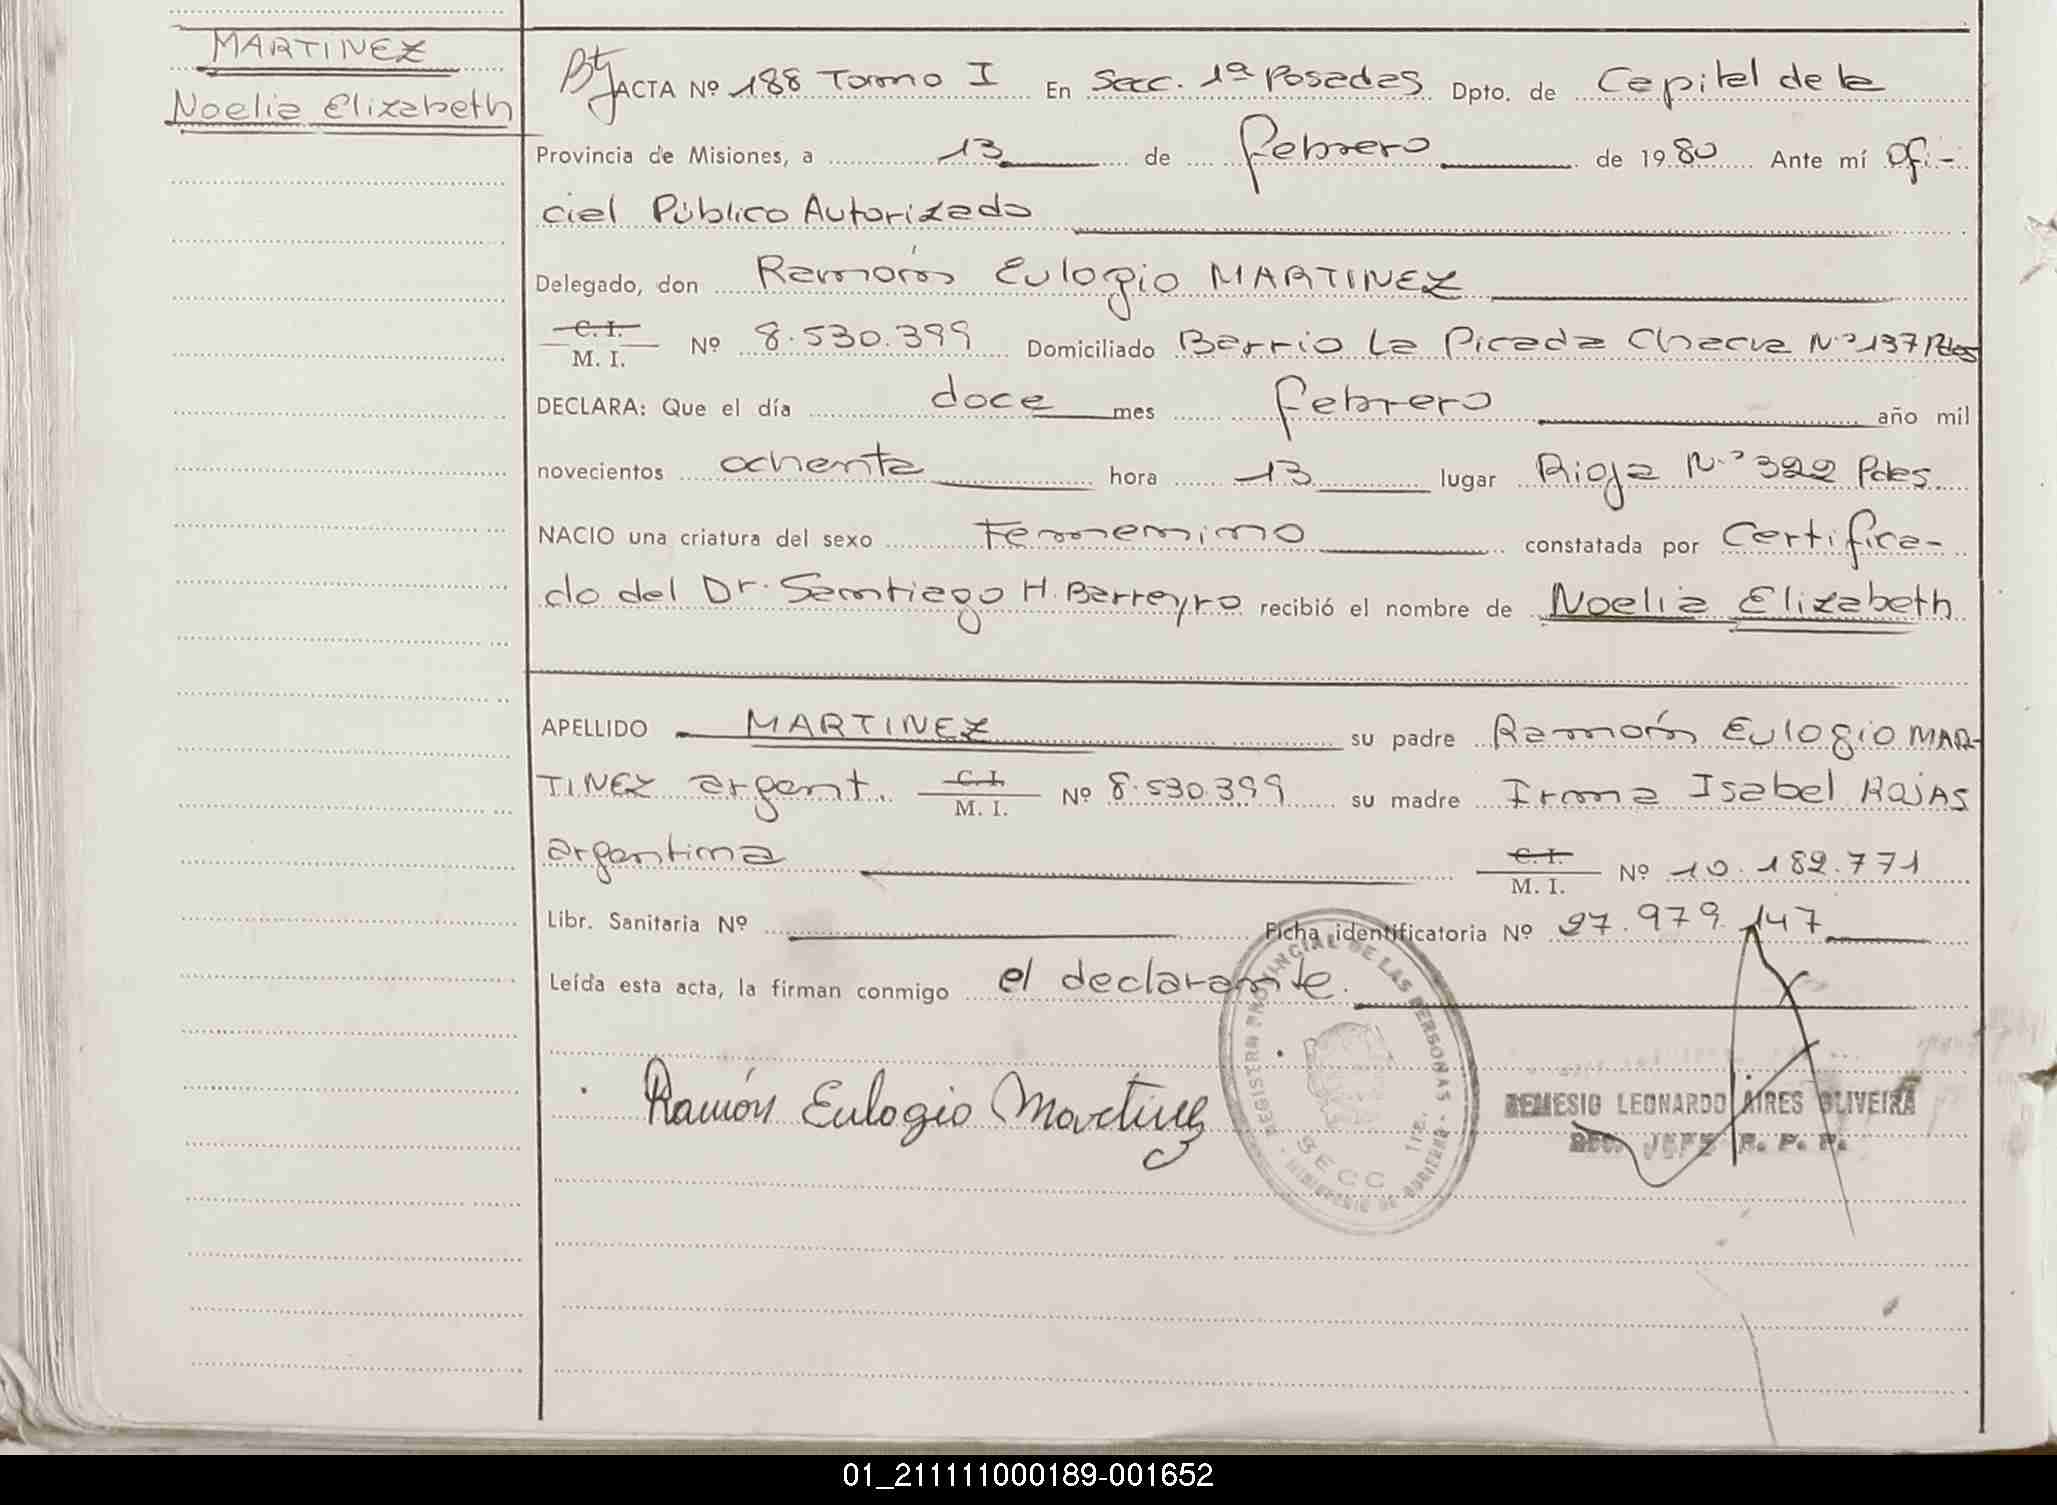 MARTINEZ
Noelia Elizabeth
ACTA Nº 188 Tomo I En Secc. 1ª Posadas Dpto. de Capital de la
Provincia de Misiones, a 13 de febrero de 1980 Ante mí Ofi-
cial Público Autorizado
Delegado, don Ramón Eulogio MARTINEZ
C. I.
M. I. Nº 8.530.399 Domiciliado Barrio La Picada Chacra Nº 137 Pdas
DECLARA: Que el día doce mes febrero año mil
novecientos ochenta hora 13 lugar Rioja Nº 322 Pdas.
NACIO una criatura del sexo Femenino constatada por Certifica-
do del Dr. Santiago H. Barreyro recibió el nombre de Noelia Elizabeth
APELLIDO MARTINEZ su padre Ramón Eulogio MAR-
TINEZ argent. C. I. M. I. Nº 8.530.399 su madre Irma Isabel ROJAS
argentina C. I. M. I. Nº 10.182.771
Libr. Sanitaria Nº Ficha identificatoria Nº 27.979.147
Leída esta acta, la firman conmigo el declarante.
Ramón Eulogio Martinez
REGISTRO PROVINCIAL DE LAS PERSONAS - MINISTERIO DE GOBIERNO -
SECC. 1ra.
REMESIO LEONARDO AIRES OLIVEIRA
JEFE R. P. P.
01_211111000189-001652